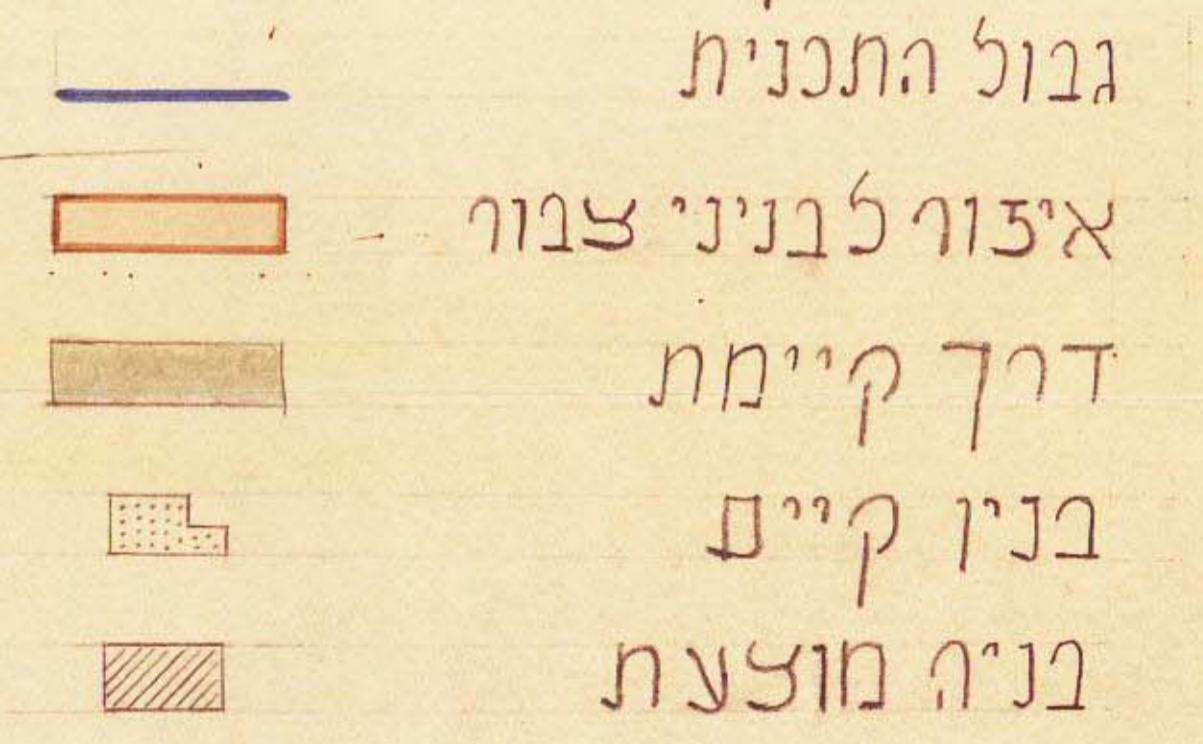 גבול התכנית
איזור לבניני צבור
דרך קיימת
בנין קיים
בניה מוצעת